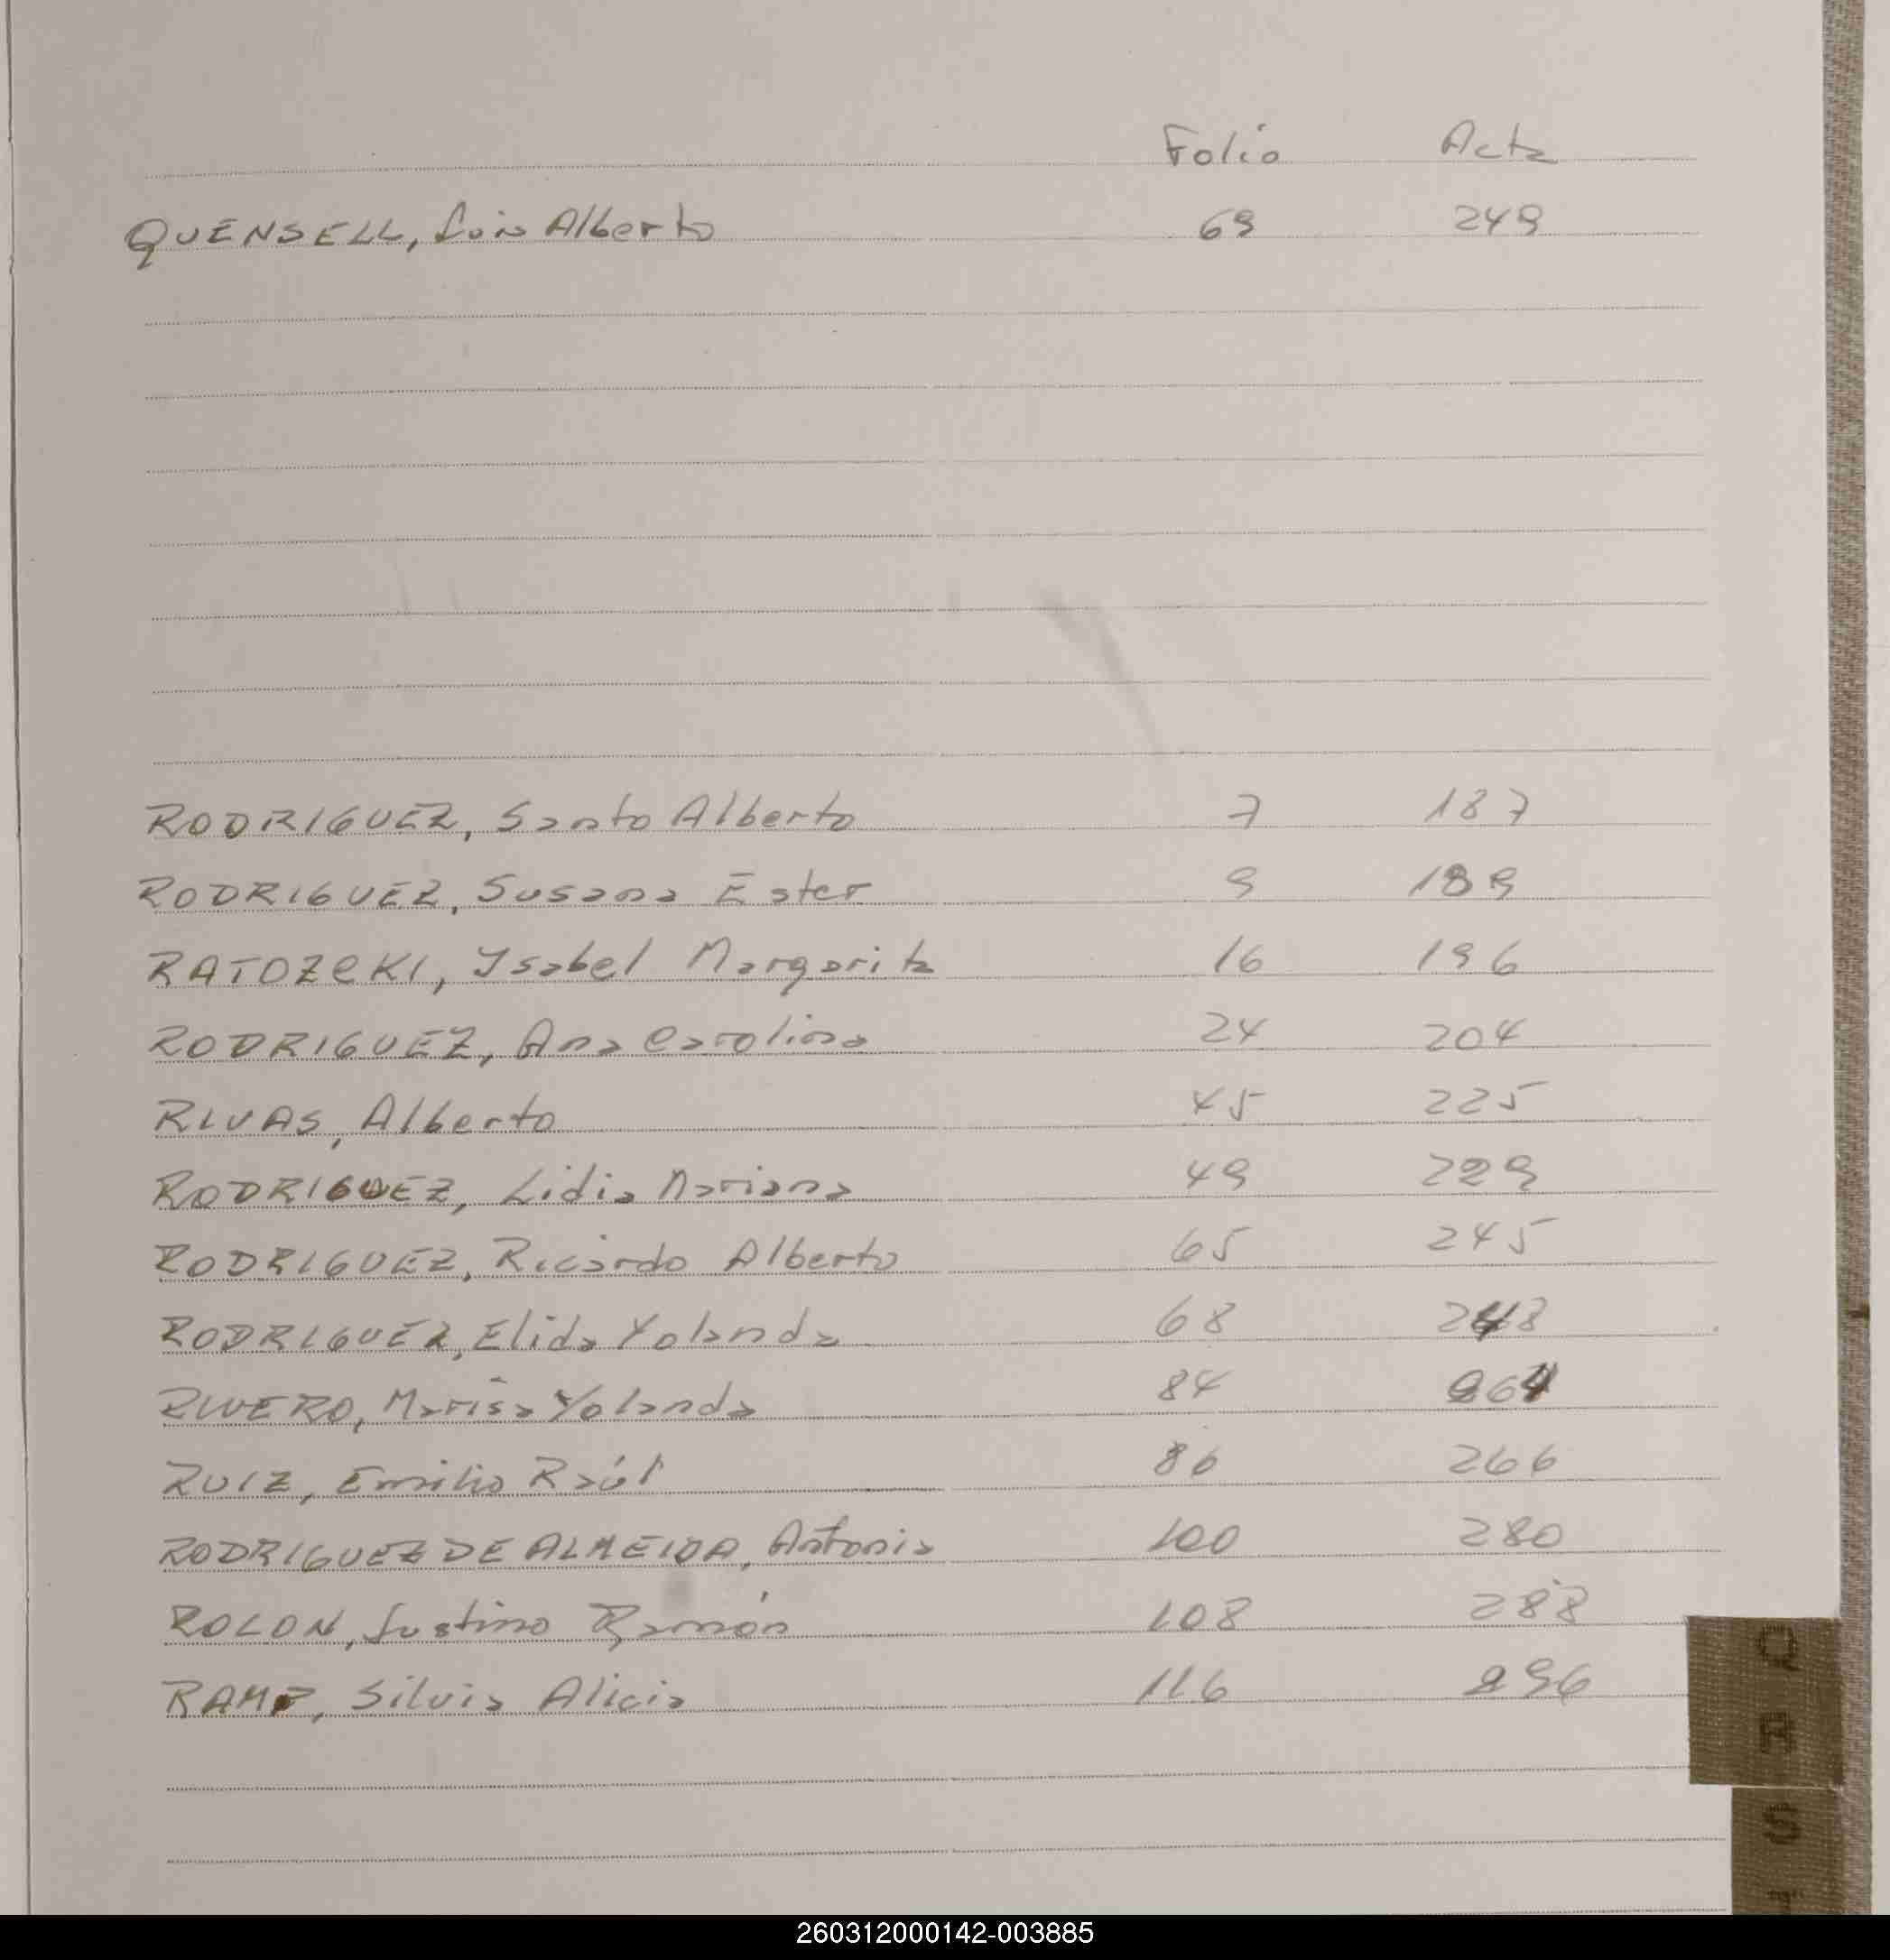 Folio Acta
QUENSELL, Luis Alberto 69 249
RODRIGUEZ, Santo Alberto 7 187
RODRIGUEZ, Susana Ester 9 189
RATOZCKI, Ysabel Margarita 16 196
RODRIGUEZ, Ana Carolina 24 204
RIVAS, Alberto 45 225
RODRIGUEZ, Lidia Mariana 49 229
RODRIGUEZ, Ricardo Alberto 65 245
RODRIGUEZ, Elida Yolanda 68 248
RIVERO, María Yolanda 84 264
RUIZ, Emilio Raúl 86 266
RODRIGUEZ DE ALMEIDA, Antonia 100 280
ROLON, Justino Ramón 108 288
Silvia Alicia 116 296
Q
R
S
260312000142-003885